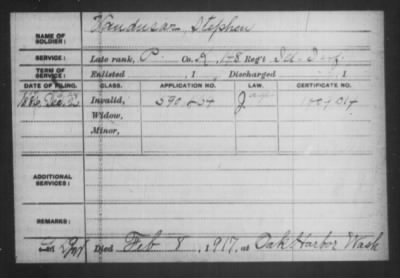 NAME OF SOLDIER: Vandusar, Stephen
SERVICE: Late rank, P. Co. 148 Reg't Inf.
TERM OF SERVICE: Enlisted , 1 Discharged , 1
DATE OF FILING. CLASS. APPLICATION NO. LAW. CERTIFICATE NO.
1886 Dec. Invalid, 590
Widow,
Minor,
ADDITIONAL SERVICES:
REMARKS:
Died Feb 8, 1917, at Oak Harbor Wash